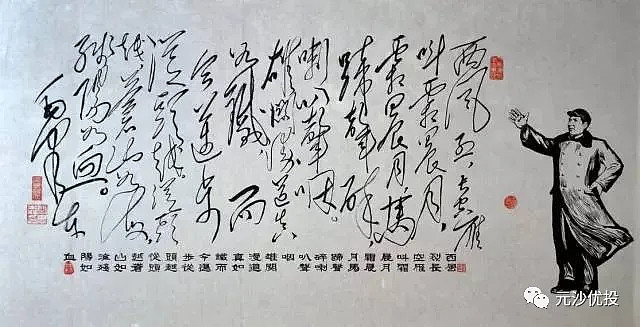 西風烈,長空雁
叫霜晨月。
霜晨月,馬
蹄聲碎,
喇叭聲咽。
雄關漫道真
如鐵,而
今邁步
從頭越。從頭
越,蒼山如海,
殘陽如血。
毛澤東
西風
烈長
空雁
叫霜
晨月
霜晨
月馬
蹄聲
碎喇
叭聲
咽
雄關
漫道
真如
鐵而
今邁
步從
頭越
從頭
越蒼
山如
海殘
陽如
血
元沙优投